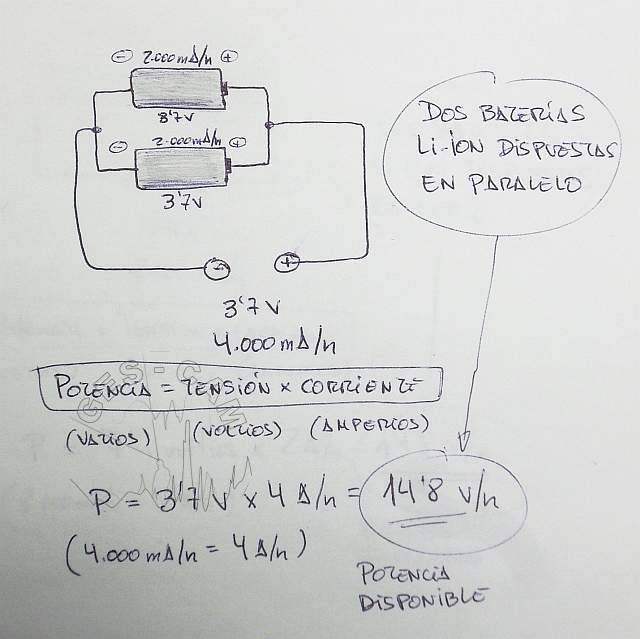 ⊖ 2.000mA/h ⊕
3'7V
⊖ 2.000mA/h ⊕
3'7V
DOS BATERÍAS
LI-ION DISPUESTAS
EN PARALELO
- +
3'7 V
4.000 mA/h
POTENCIA = TENSIÓN x CORRIENTE
(VATIOS) (VOLTIOS) (AMPERIOS)
P = 3'7 V x 4 A/h = 14'8 V/h
(4.000 mA/h = 4 A/h)
POTENCIA
DISPONIBLE